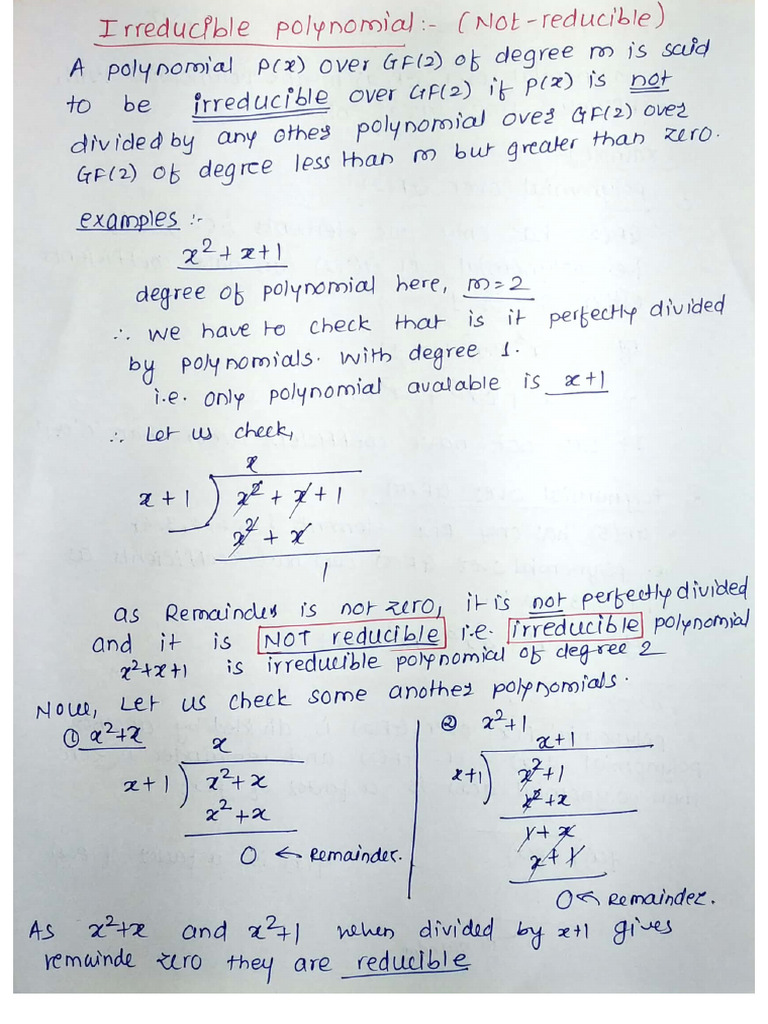 Irreducible polynomial:- (Not-reducible)
A polynomial P(x) over GF(2) of degree m is said
to be irreducible over GF(2) if P(x) is not
divided by any other polynomial over GF(2) over
GF(2) of degree less than m but greater than zero.
examples :-
x² + x + 1
degree of polynomial here, m = 2
∴ we have to check that is it perfectly divided
by polynomials. with degree 1.
i.e. only polynomial avalable is x+1
∴ Let us check,
x
x + 1 ) x² + x + 1
x² + x
1
as Remainder is not zero, it is not perfectly divided
and it is NOT reducible i.e. irreducible polynomial
x²+x+1 is irreducible polynomial of degree 2
Now, Let us check some another polynomials.
① x²+x
x
x + 1 ) x² + x
x² + x
0 ← Remainder.
② x²+1
x+1
x+1 ) x²+1
x²+x
1+x
x+1
0 ← Remainder.
As x²+x and x²+1 when divided by x+1 gives
remainde zero they are reducible